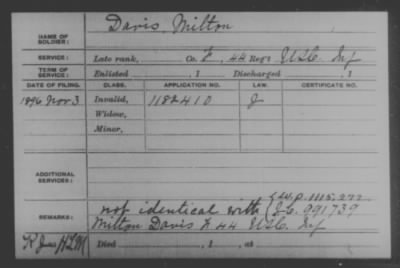 Davis, Milton
NAME OF SOLDIER:
SERVICE: Late rank, Co. F, 44 Reg't U.S.C. Inf
TERM OF SERVICE: Enlisted , 1 Discharged , 1
DATE OF FILING. CLASS. APPLICATION NO. LAW. CERTIFICATE NO.
1896 Nov 3 Invalid, 1182410 J
Widow,
Minor,
ADDITIONAL SERVICES:
1115,277
REMARKS: not identical with 991739
Milton Davis F 44 U.S.C. Inf
Died , 1 , at